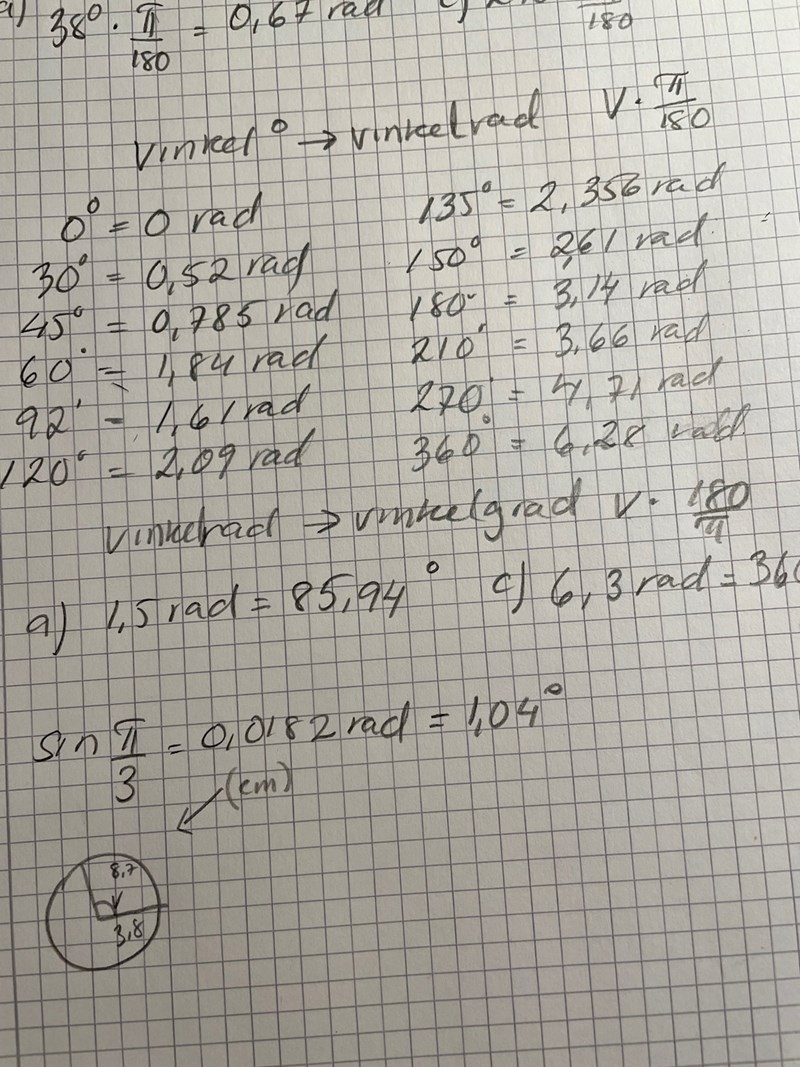 a) 38° · π/180 = 0,67 rad
180
Vinkel° → vinkelrad V · π/180
0° = 0 rad 135° = 2,356 rad
30° = 0,52 rad 150° = 2,61 rad
45° = 0,785 rad 180° = 3,14 rad
60° = 1,84 rad 210° = 3,66 rad
92° = 1,61 rad 270° = 4,71 rad
120° = 2,09 rad 360° = 6,28 rad
vinkelrad → vinkelgrad V · 180/π
a) 1,5 rad = 85,94° c) 6,3 rad = 360
sin π/3 = 0,0182 rad = 1,04°
(cm)
8,7
3,8